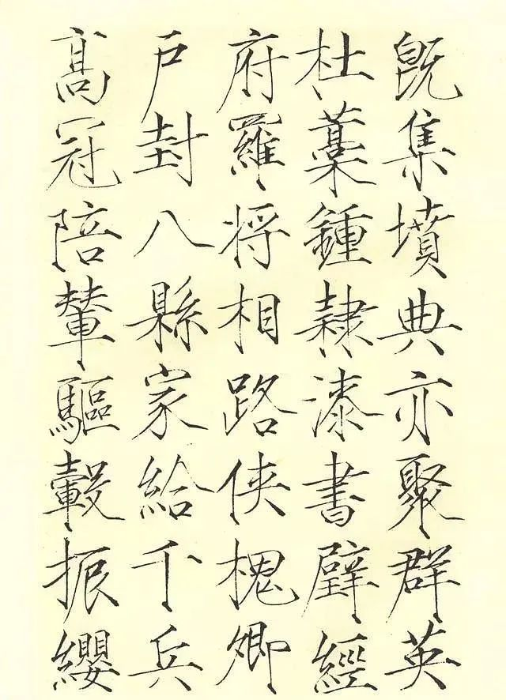 既集墳典亦聚群英
杜藁鍾隸漆書壁經
府羅将相路俠槐卿
戶封八縣家給千兵
髙冠陪輦驅轂振纓